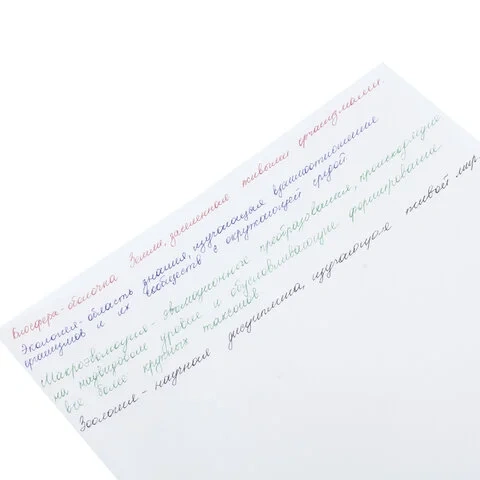 Биосфера - оболочка Земли, заселенная живыми организмами.
Экология - область знания, изучающая взаимоотношения
организмов и их сообществ с окружающей средой.
Макроэволюция - эволюционные преобразования, происходящие
на надвидовом уровне и обусловливающие формирование
все более крупных таксонов
Зоология - научная дисциплина, изучающая живой мир.